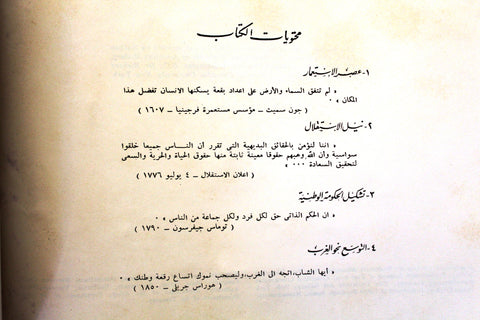 محتويات الكتاب
١- عصر الاستعمار
« لم تتفق السماء والأرض على اعداد بقعة يسكنها الانسان تفضل هذا
المكان » ٠
( جون سميث ــ مؤسس مستعمرة فرجينيا ــ ١٦٠٧ )
٢- نيل الاستقلال
« اننا لنؤمن بالحقائق البديهية التى تقرر أن النــاس جميعا خلقوا
سواسية وأن الله وهبهم حقوقا معينة ثابتة منها حقوق الحياة والحرية والسعى
لتحقيق السعادة ٠٠٠ »
( اعلان الاستقلال ــ ٤ يوليو ١٧٧٦ )
٣- تشكيل الحكومة الوطنية
« ان الحكم الذاتى حق لكل فرد ولكل جماعة من الناس » ٠
( توماس جيفرسون ــ ١٧٩٠ )
٤- التوسع نحو الغرب
« أيها الشاب، اتجه الى الغرب، وليصحب نموك اتساع رقعة وطنك » ٠
( هوراس جريلى ــ ١٨٥٠ )